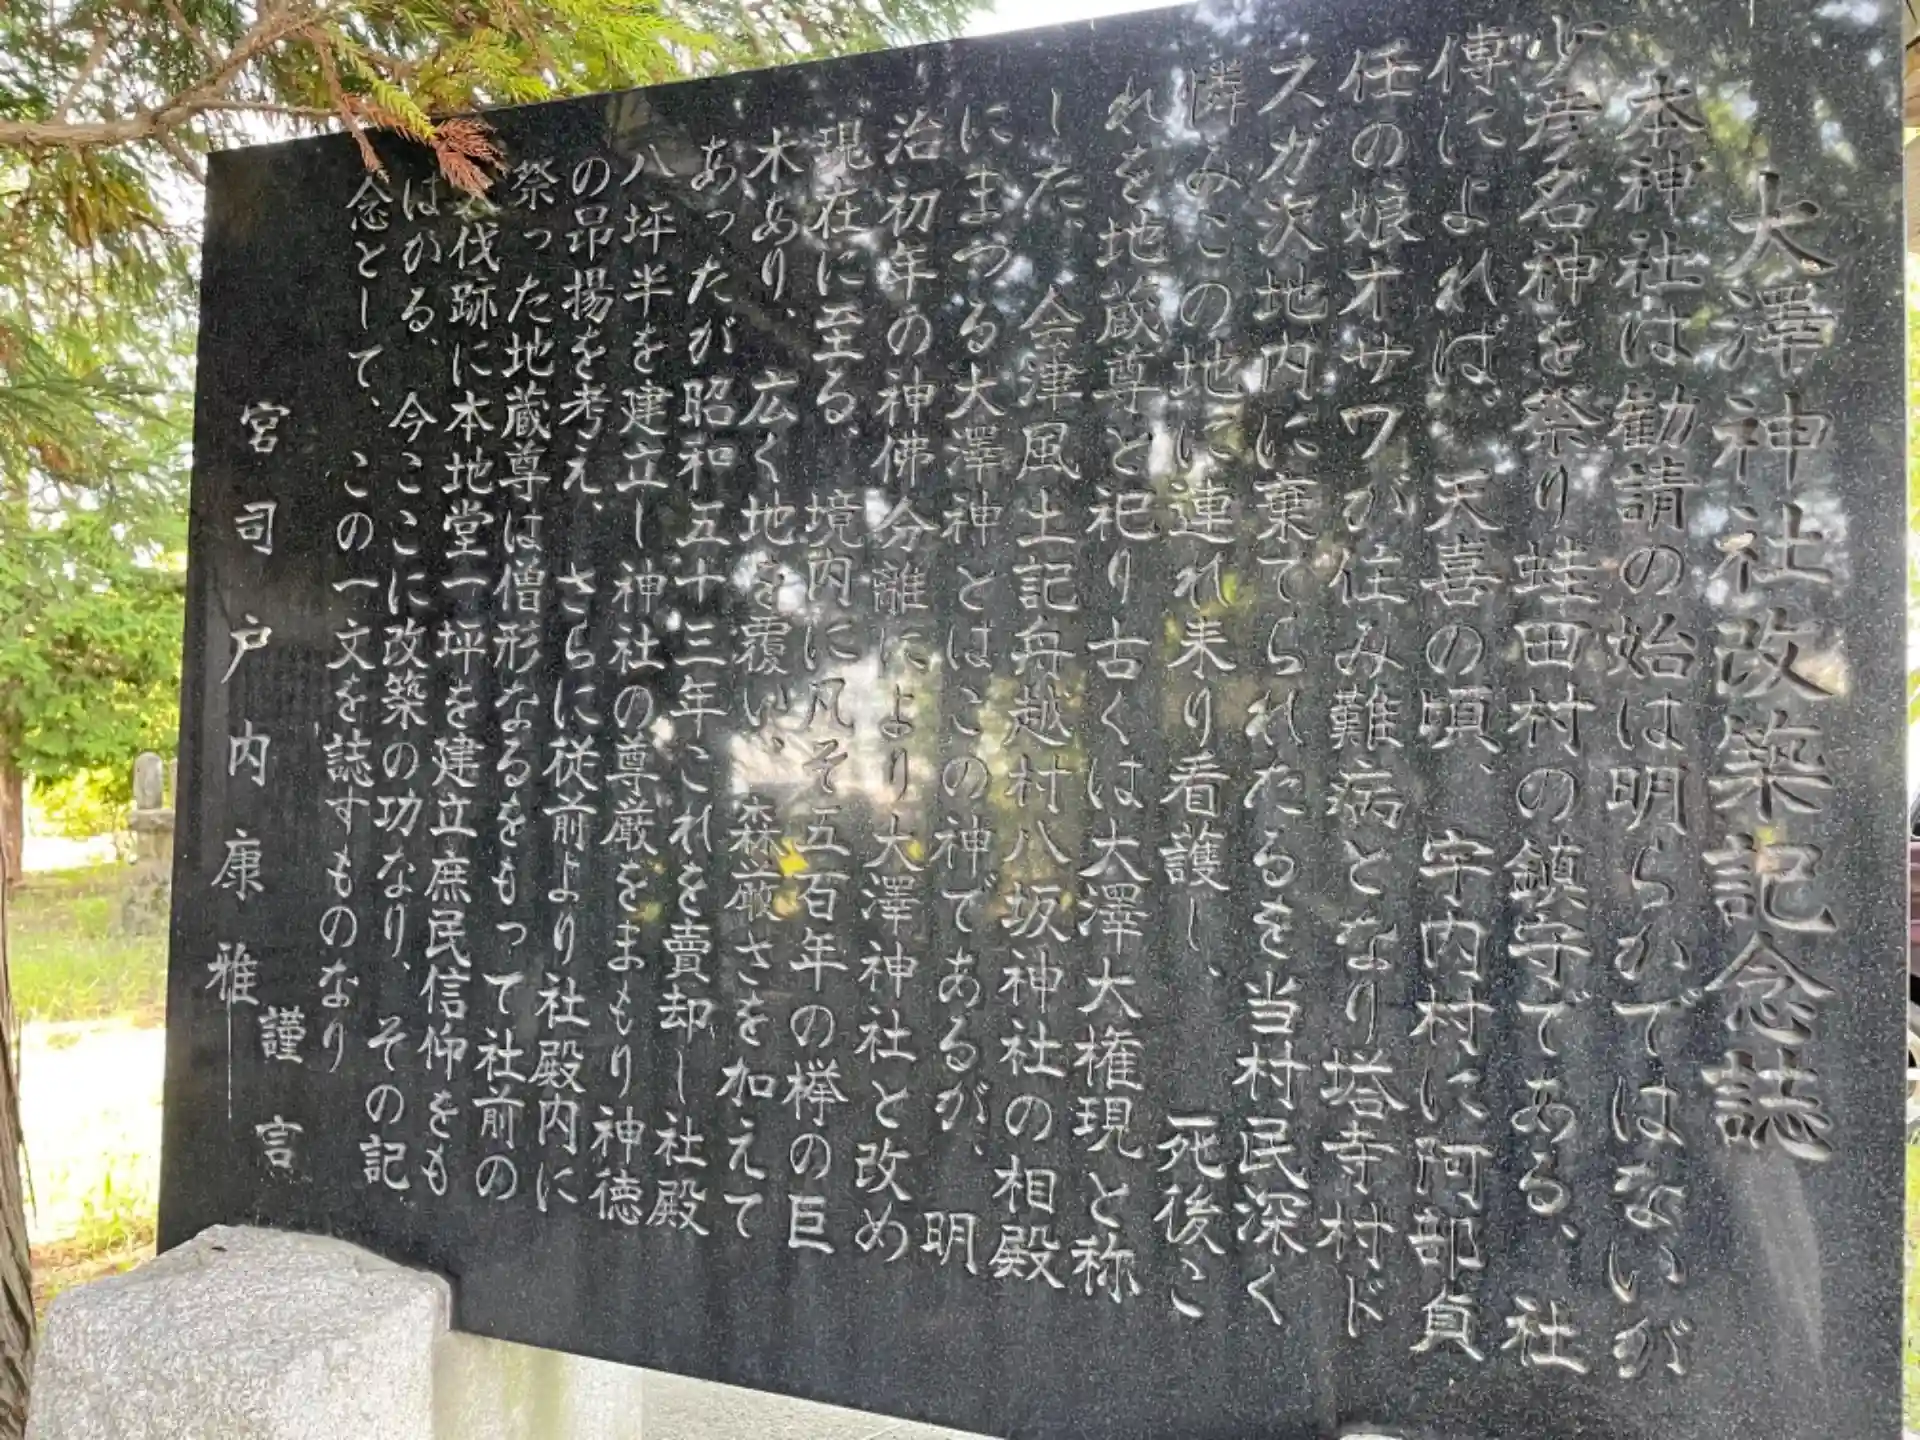 大澤神社改築記念誌
本神社は勧請の始は明らかではないが
少彦名神を祭り蛙田村の鎮守である、社
傳によれば、天喜の頃、宇内村に阿部貞
任の娘オサワが住み難病となり塔寺村ド
スガ沢地内に棄てられたるを当村民深く
憐みこの地に連れ来り看護し、死後こ
れを地蔵尊と祀り古くは大澤大権現と称
した、会津風土記舟越村八坂神社の相殿
にまつる大澤神とはこの神であるが、明
治初年の神佛分離により大澤神社と改め
現在に至る、境内に凡そ五百年の欅の巨
木あり、広く地を覆い、森厳さを加えて
あったが昭和五十三年これを賣却し社殿
八坪半を建立し神社の尊厳をまもり神徳
の昂揚を考え、さらに従前より社殿内に
祭った地蔵尊は僧形なるをもって社前の
伐跡に本地堂一坪を建立庶民信仰をも
はかる、今ここに改築の功なり、その記
念として、この一文を誌すものなり
謹言
宮司戸内康雅